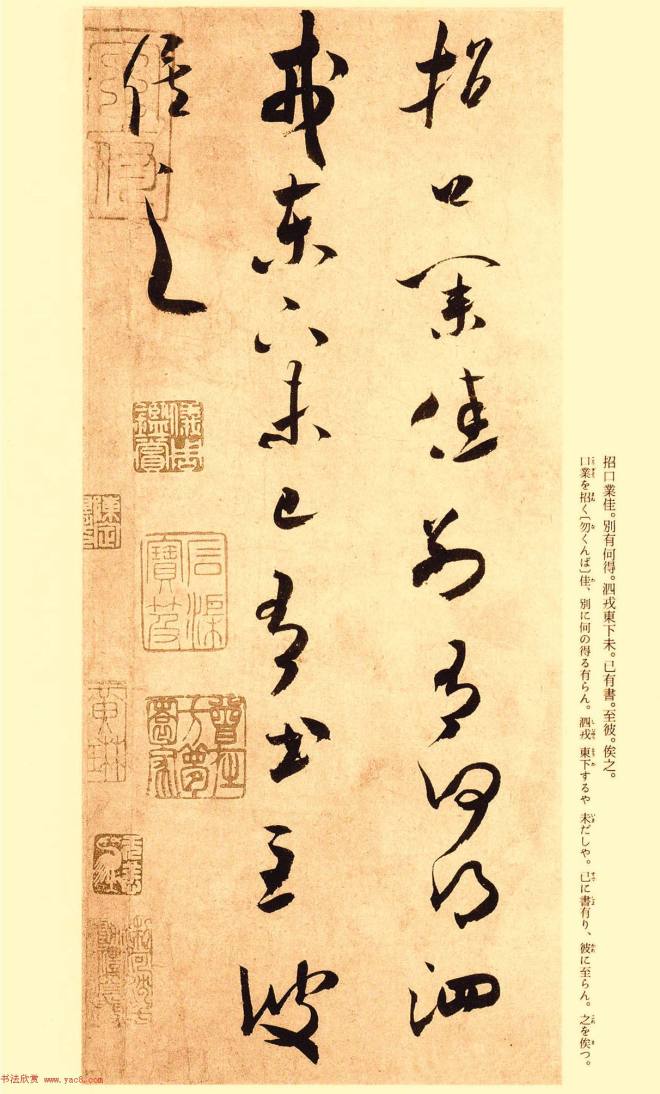 招口業佳。別有何得。泗戎東下未。已有書。至彼。俟之。
口業を招く〔勿くんば〕佳、別に何の得る有らん。泗戎 東下するや 未だしや。已に書有り、彼に至らん。之を俟つ。
招口業佳別有何得泗
戎東下未已有書至彼
俟之
黄琳
书法欣赏 www.yac8.com